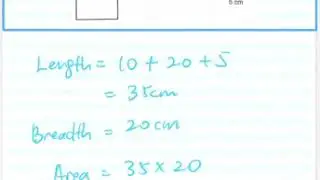 5 cm
Length = 10 + 20 + 5
= 35cm
Breadth = 20cm
Area = 35 × 20